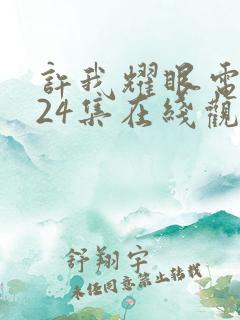 許我耀眼電
24集在线觀
舒翔宇
未经同意禁止转载